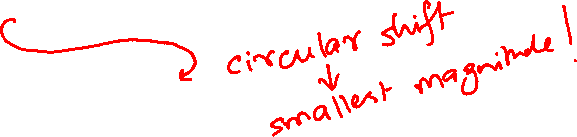 circular shift
↓
smallest magnitude!